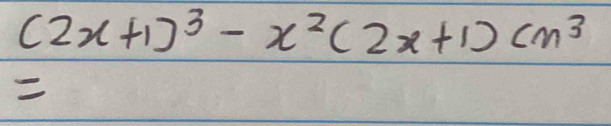 (2x+1)³ - x²(2x+1) cm³
=